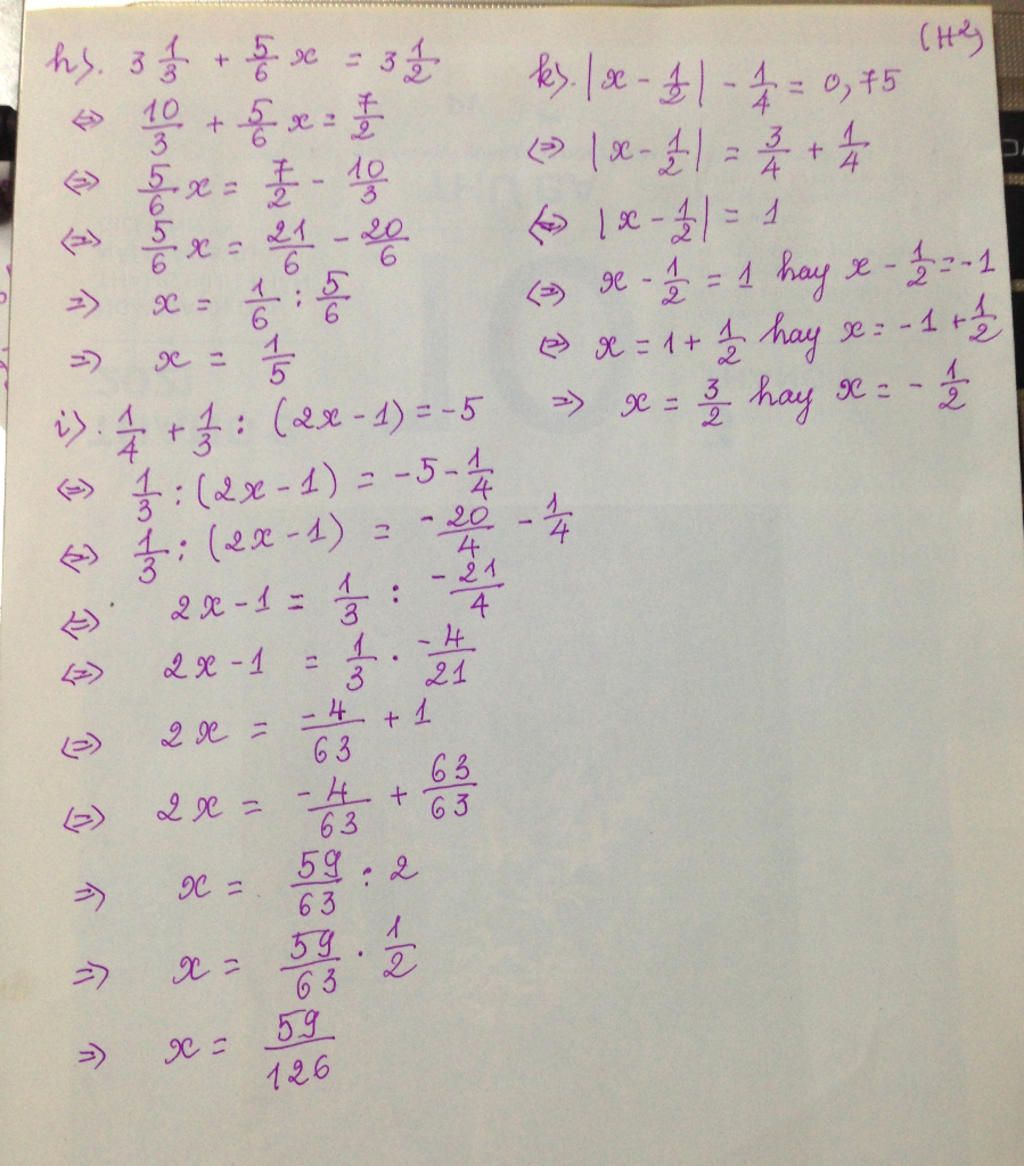 (H²)
h). 3 1/3 + 5/6 x = 3 1/2
⇔ 10/3 + 5/6 x = 7/2
⇔ 5/6 x = 7/2 - 10/3
⇔ 5/6 x = 21/6 - 20/6
⇒ x = 1/6 : 5/6
⇒ x = 1/5
i). 1/4 + 1/3 : (2x - 1) = -5
⇔ 1/3 : (2x - 1) = -5 - 1/4
⇔ 1/3 : (2x - 1) = -20/4 - 1/4
⇔ 2x - 1 = 1/3 : -21/4
⇔ 2x - 1 = 1/3 . -4/21
⇔ 2x = -4/63 + 1
⇔ 2x = -4/63 + 63/63
⇒ x = 59/63 : 2
⇒ x = 59/63 . 1/2
⇒ x = 59/126
k). |x - 1/2| - 1/4 = 0,75
⇔ |x - 1/2| = 3/4 + 1/4
⇔ |x - 1/2| = 1
⇔ x - 1/2 = 1 hay x - 1/2 = -1
⇔ x = 1 + 1/2 hay x = -1 + 1/2
⇒ x = 3/2 hay x = - 1/2